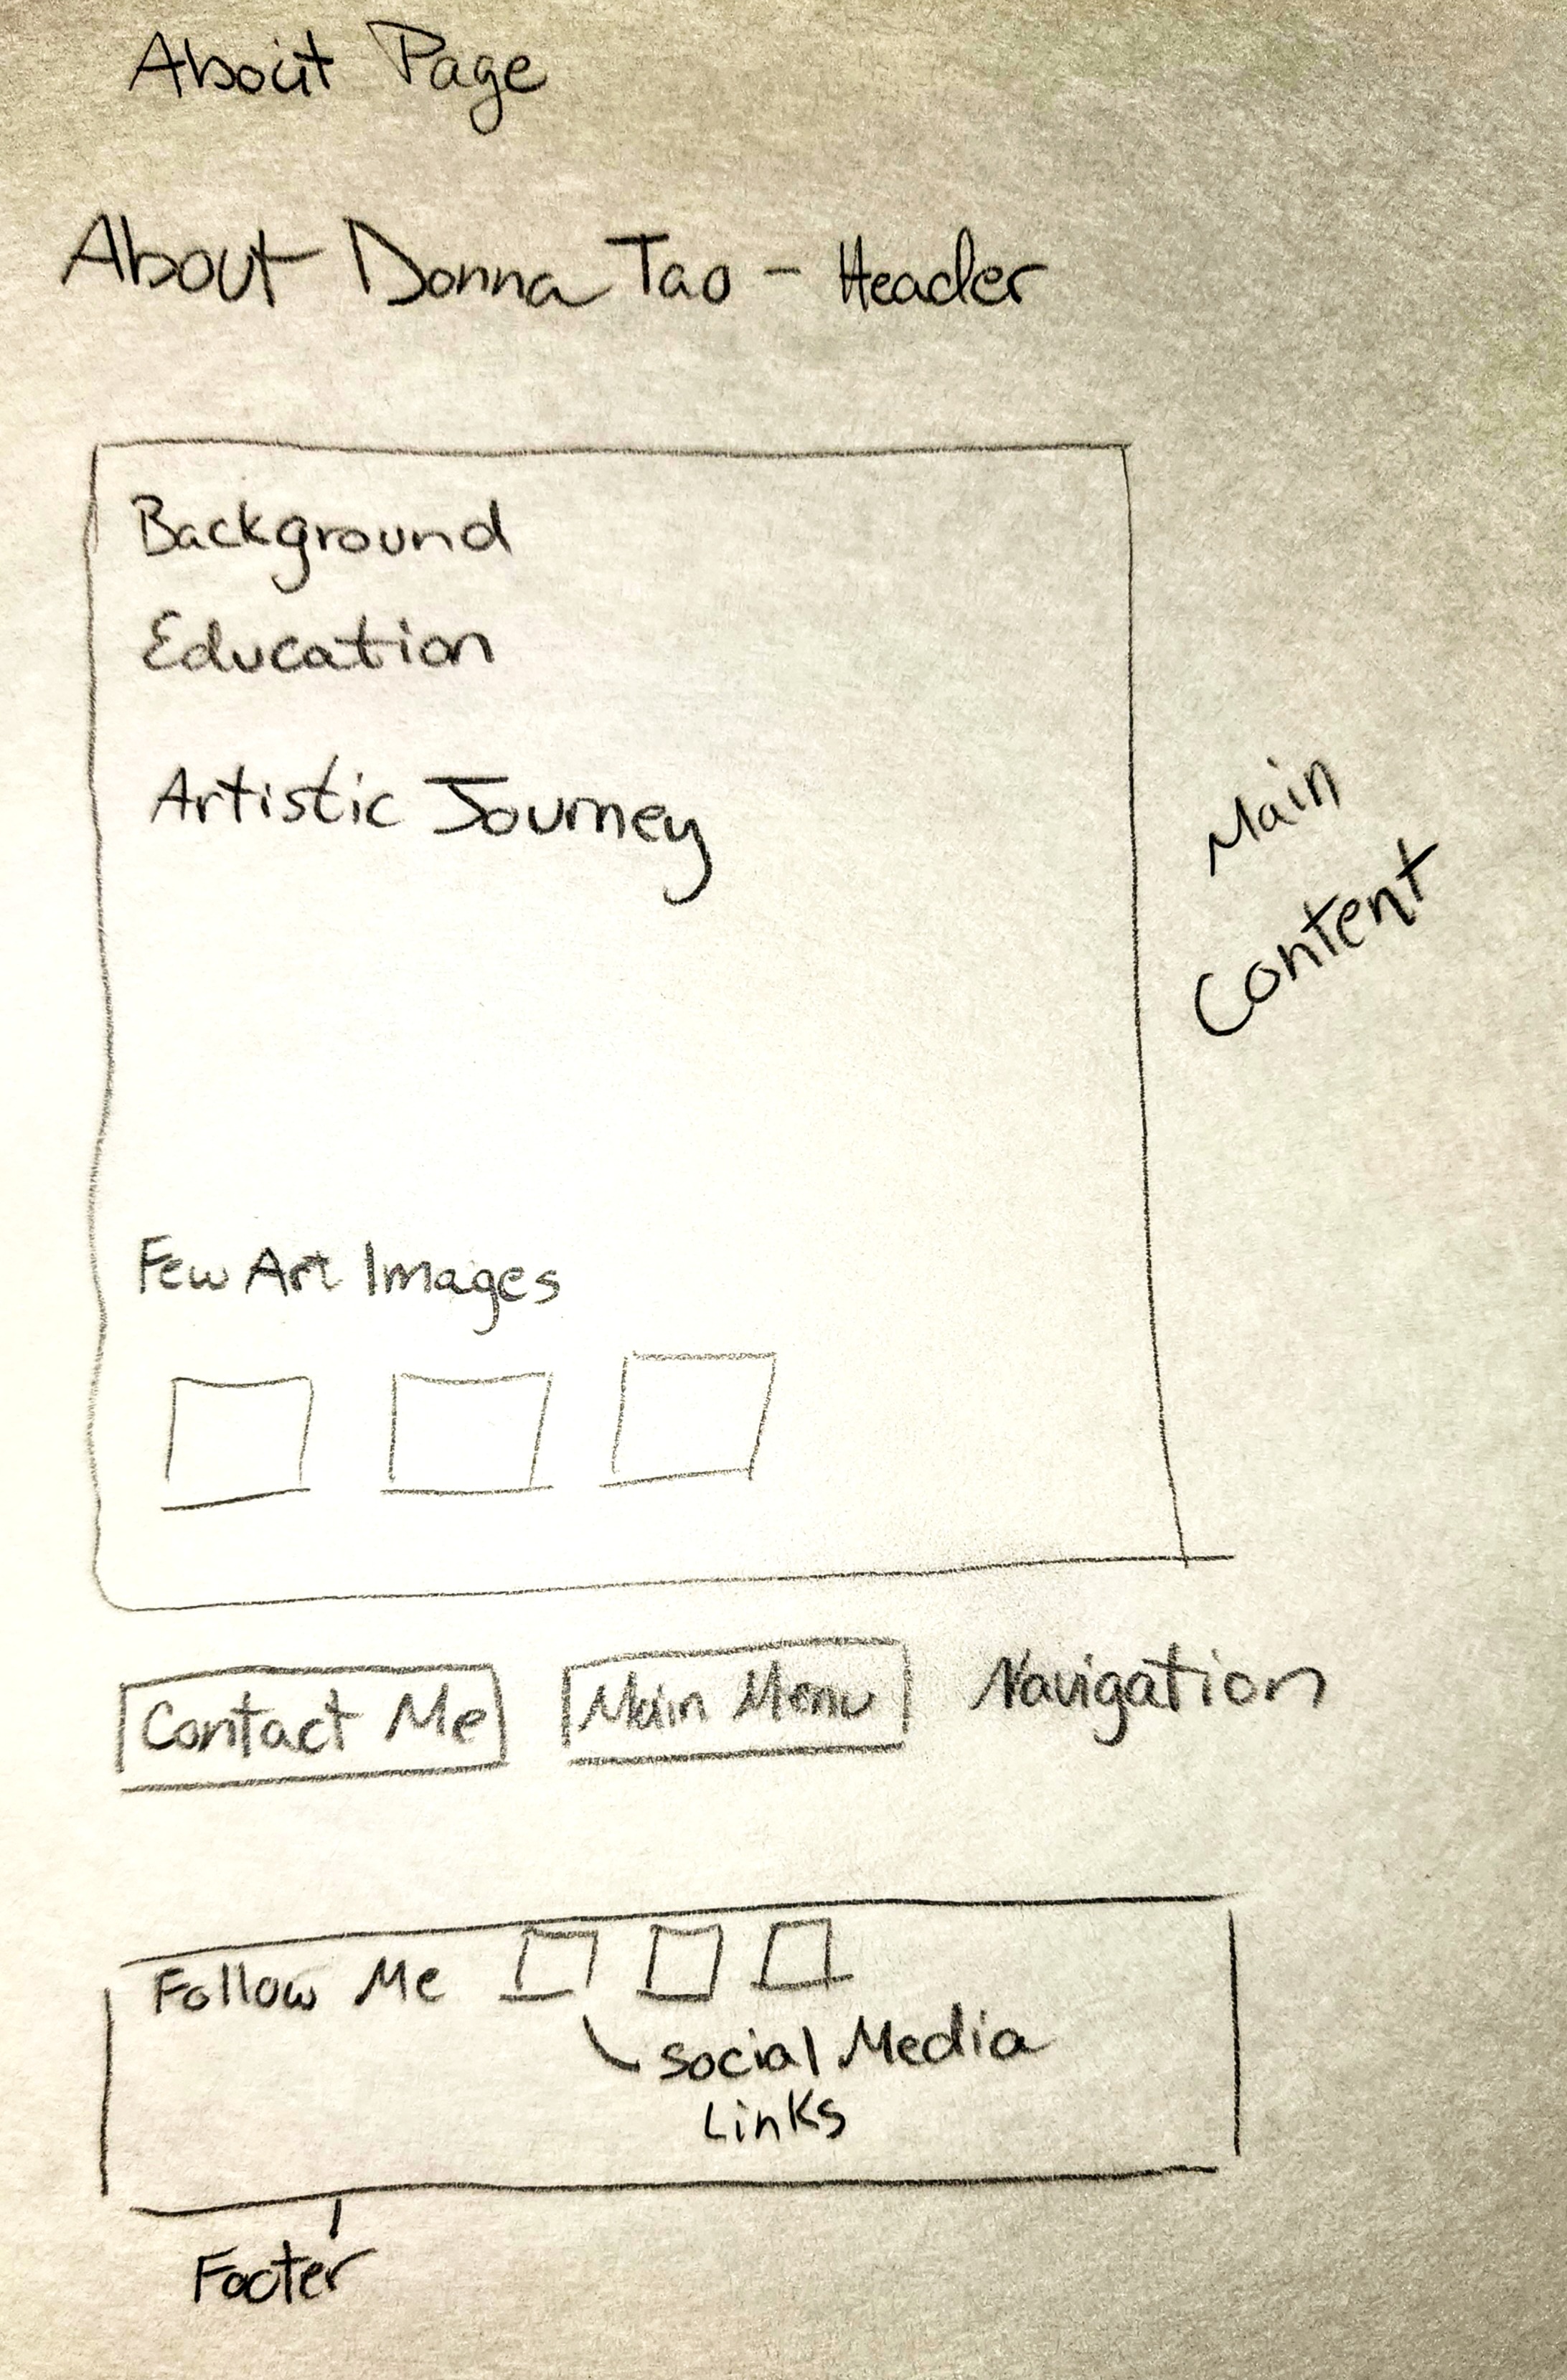 About Page
About Donna Tao - Header
Background
Education
Artistic Journey
Main
Content
Few Art Images
Contact Me
Main Menu
Navigation
Follow Me
Social Media
Links
Footer